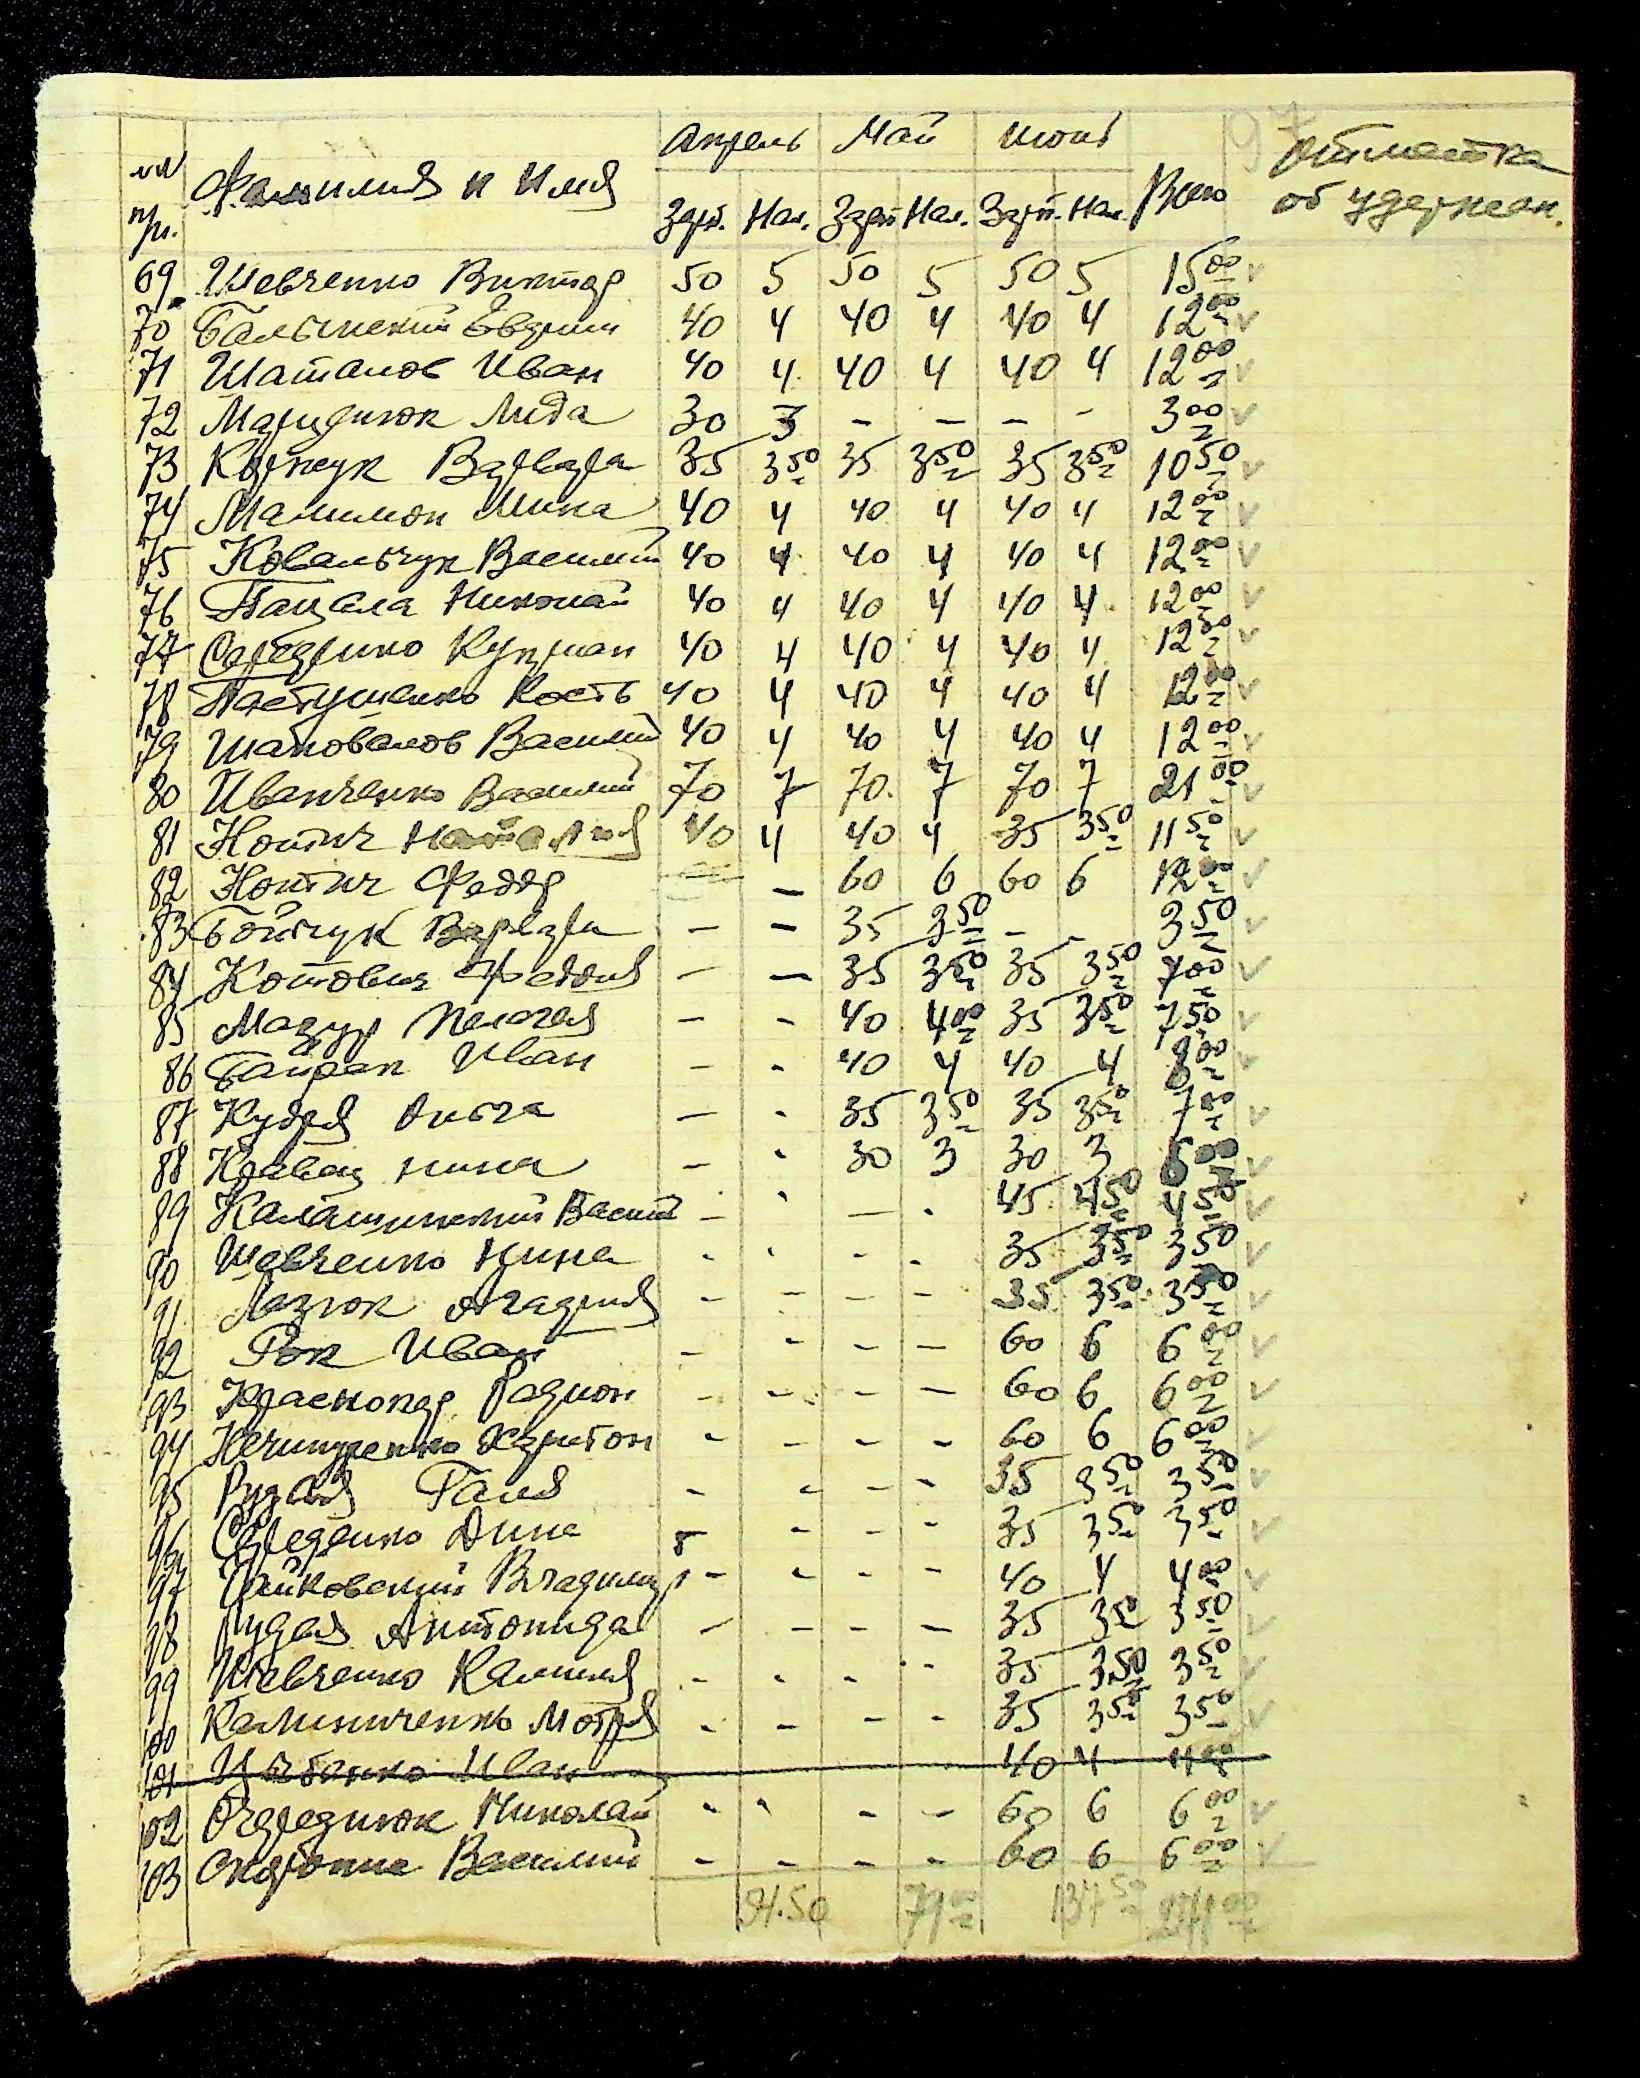 97
Апрель Май Июнь
№№ пр. Фамилия и Имя Зарп. Нал. Зарп Нал. Зарп. Нал. Всего Отметка об удержан.
69. Шевченко Виктор 50 5 50 5 50 5 15 00
70 Бальинский Евдоким 40 4 40 4 40 4 12 00
71 Шаталов Иван 40 4 40 4 40 4 12 00
72 Марценюк Лида 30 3 – – – – 3 00
73 Корнчук Варвара 35 3 50 35 3 50 35 3 50 10 50
74 Малимон Мина 40 4 40 4 40 4 12 00
75 Ковальчук Василий 40 4 40 4 40 4 12 00
76 Пацала Николай 40 4 40 4 40 4 12 00
77 Середенко Куприан 40 4 40 4 40 4 12 00
78 Пастушенко Кость 40 4 40 4 40 4 12 00
79 Шаповалов Василий 40 4 40 4 40 4 12 00
80 Иванченко Василий 70 7 70 7 70 7 21 00
81 Нотич Наталия 40 4 40 4 35 3 50 11 50
82 Нотич Федор – 60 6 60 6 12 00
83 Бойчук Варвара – – 35 3 50 – – 3 50
84 Котович Федоня – – 35 3 50 35 3 50 7 00
85 Мазур Пелагея – – 40 4 00 35 3 50 7 50
86 Байрак Иван – - 40 4 40 4 8 00
87 Кудря Ольга – - 35 3 50 35 3 50 7 00
88 Кравец Нина – - 30 3 30 3 6 00
89 Калашинский Васил – - – - 45 4 50 4 50
90 Шевченко Нина - - - - 35 3 50 3 50
91 Лазюк Агадия - - - – 35 3 50 3 50
92 Рок Иван – - - – 60 6 6 00
93 Краснопер Радион - - - – 60 6 6 00
94 Нечипуренко Харитон - - - – 60 6 6 00
95 Рудая Галя - - - - 35 3 50 3 50
96 Середенко Дина - - - - 35 3 50 3 50
97 Чайковский Владимир - - - - 40 4 4 00
98 Рудая Антонида – - - – 35 3 50 3 50
99 Шевченко Калиня - - - - 35 3 50 3 50
100 Калиниченко Мотря - - - - 35 3 50 3 50
101 Цибенко Иван 40 4 4 00
102 Очередиюк Николай - - - – 60 6 6 00
103 Скорбние Василий - - - - 60 6 6 00
71 00 137 50